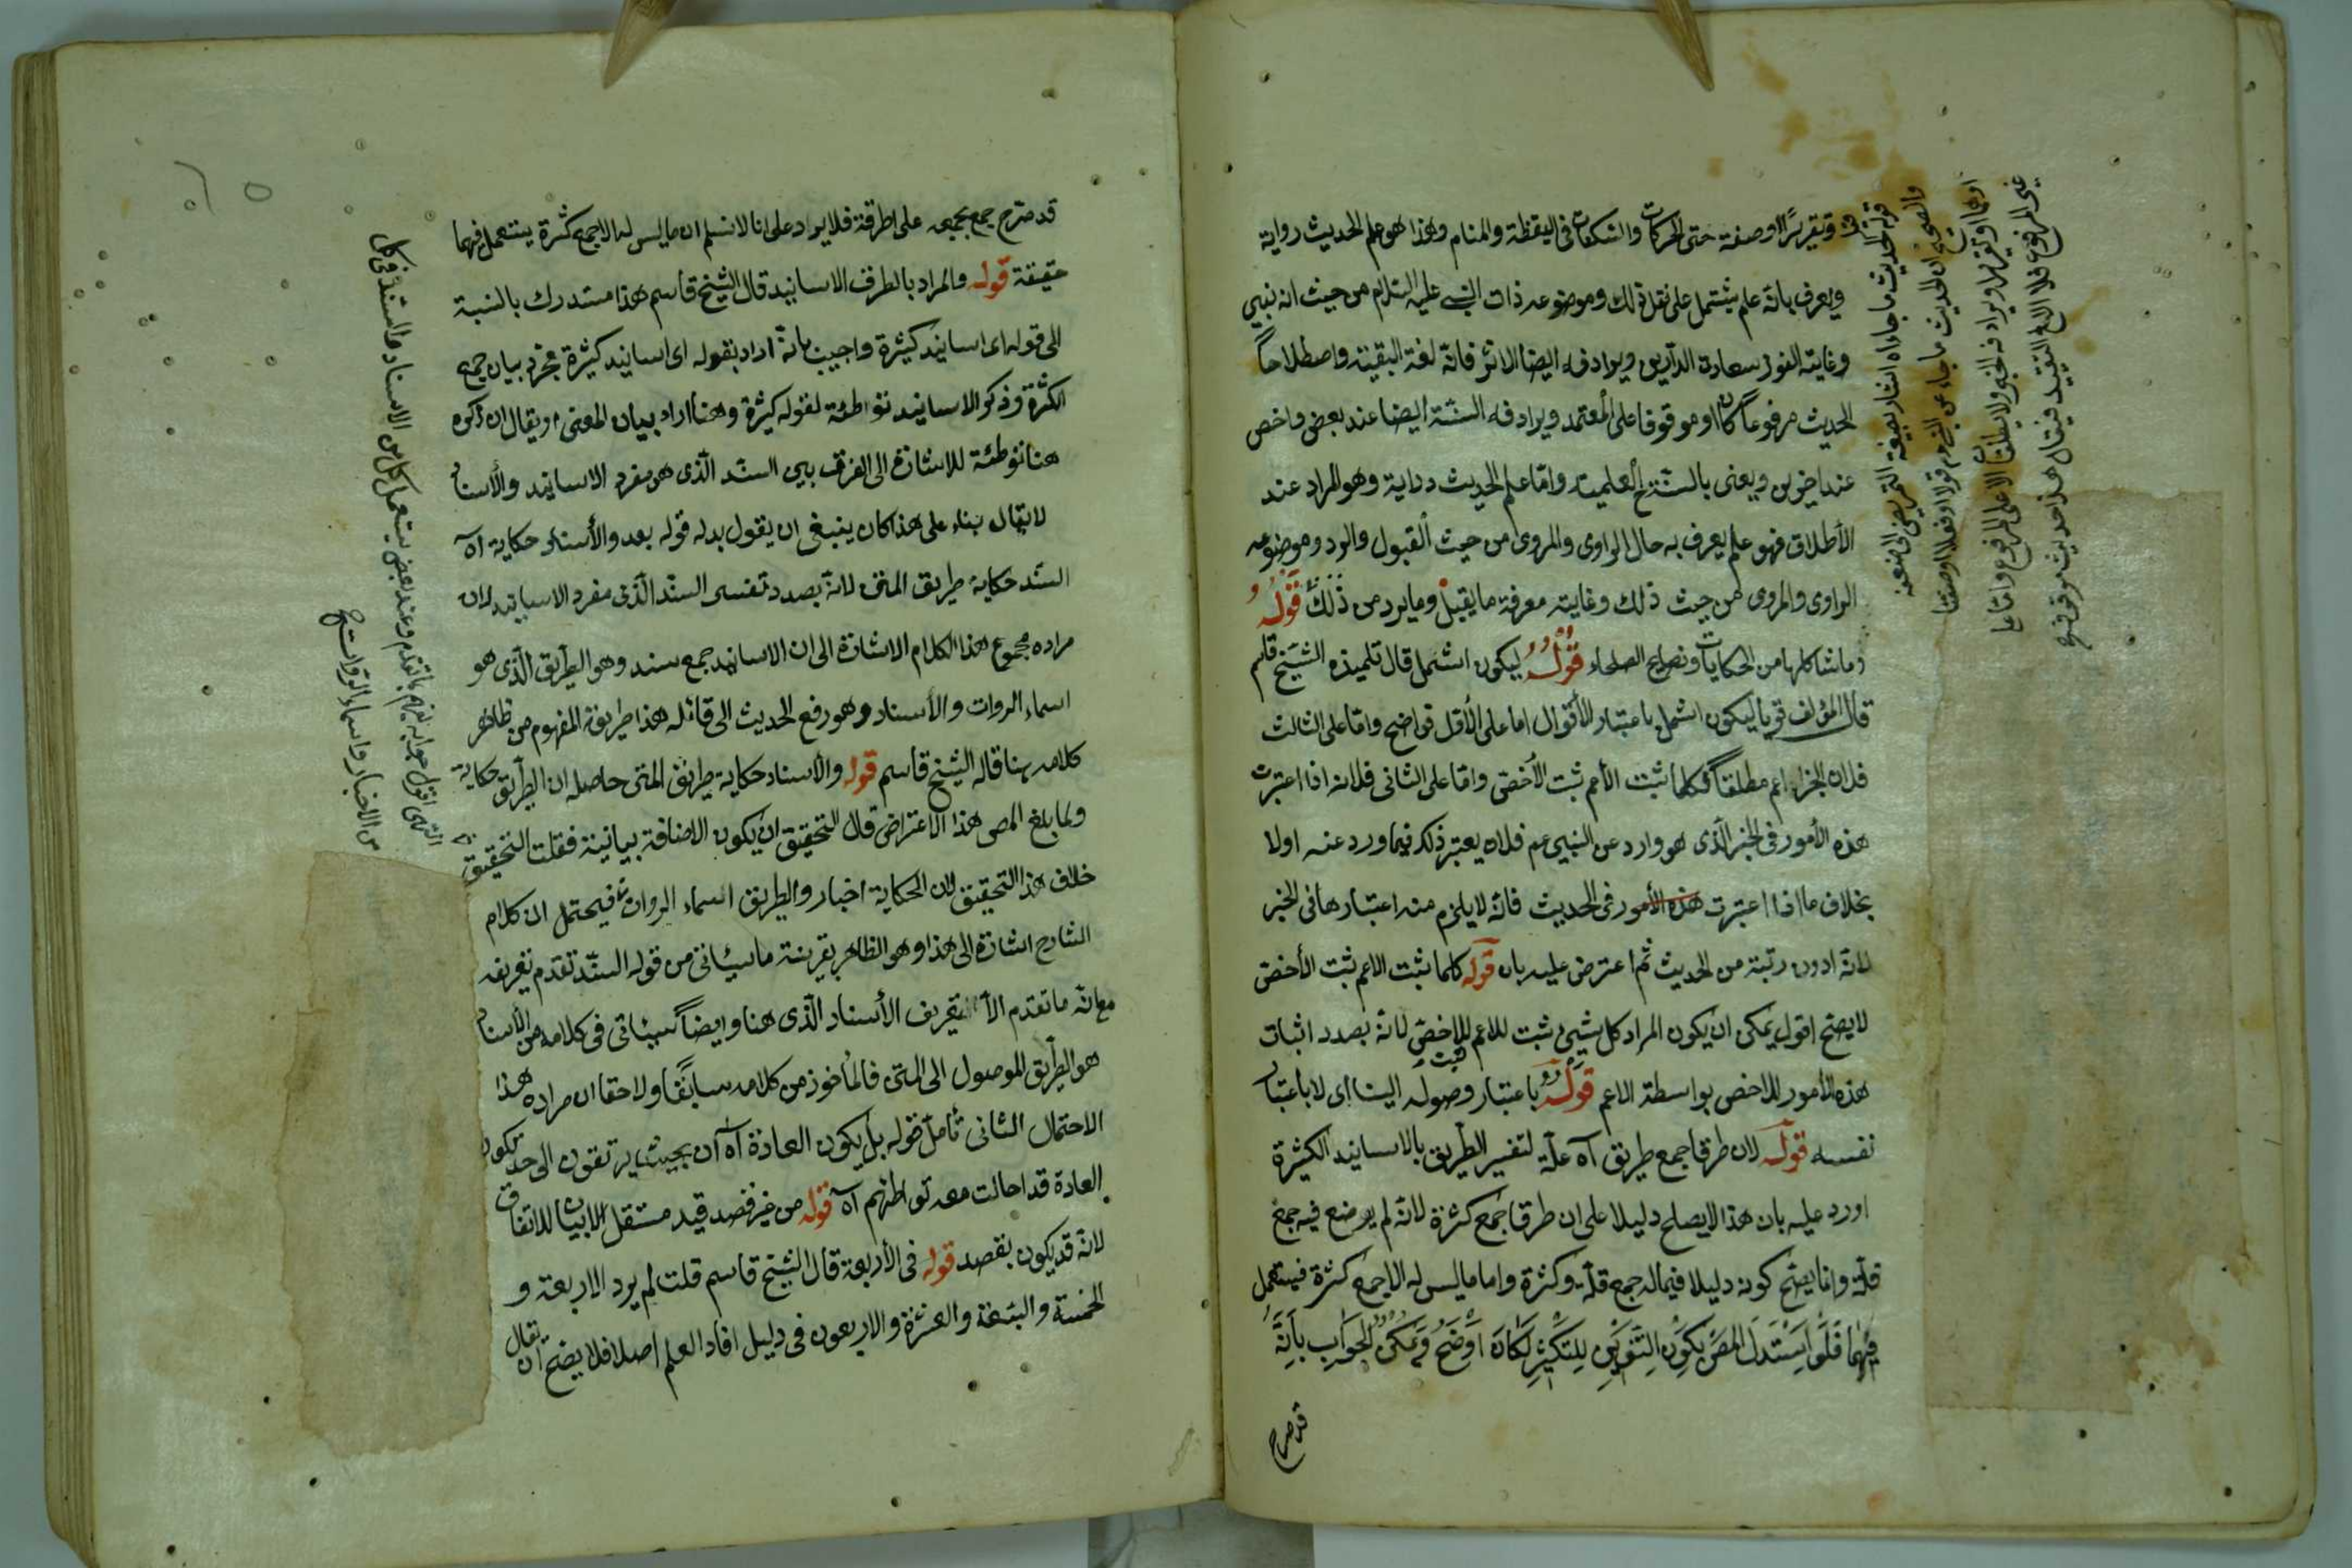 وتقريرًا او صفة حتى الحركات والسكنات فى اليقظة والمنام وهذا هو علم الحديث رواية
ويعرف بانه علم يشتمل على نقل ذلك وموضوعه ذات النبى عليه السلام من حيث انه نبى
وغايته الفوز بسعادة الدارين ويرادفه ايضا الاثر فانه لغة البقية واصطلاحاً
الحديث مرفوعاً كان او موقوفا على المعتمد ويرادفه السنة ايضا عند بعض واخص
عند اخرين ويعنى بالسنة العلمية واما علم الحديث دراية وهو المراد عند
الأطلاق فهو علم يعرف به حال الراوى والمروى من حيث القبول والرد وموضوعه
الراوى والمروى من حيث ذلك وغايته معرفة ما يقبل وما يرد من ذلك قوله
وما شاكلها من الحكايات ونصايح الصلحاء قوله ليكون اشمل قال تلميذه الشيخ قاسم
قال المؤلف قريبا ليكون اشمل باعتبار الأقوال اما على الأول فواضح واما على الثالث
فلان الخبر اعم مطلقاً فكلما ثبت الأعم ثبت الأخص واما على الثانى فلانه اذا اعتبرت
هذه الأمور فى الخبر الذى هو وارد عن النبى عم فلان يعتبر ذلك فيما ورد عنه اولا
بخلاف ما اذا اعتبرت هذه الأمور فى الحديث فانه لا يلزم منه اعتبارها فى الخبر
لانه ادون رتبة من الحديث ثم اعترض عليه بان قوله كلما ثبت الاعم ثبت الأخص
لا يصح اقول يمكن ان يكون المراد كل شيء ثبت للاعم ثبت للاخص لانه بصدد اثبات
هذه الأمور للاخص بواسطة الاعم قوله باعتبار وصوله الينا اى لا باعتبار
نفسه قوله لان طرقا جمع طريق آه علة لتفسير الطريق بالاسانيد الكثيرة
اورد عليه بان هذا لا يصلح دليلا على ان طرقا جمع كثرة لانه لم يوضع فيه جمع
قلة وانما يصح كونه دليلا فيما له جمع قلة وكثرة واما ما ليس له الا جمع كثرة فيستعمل
فيهما فلو استدل المص بكون التنوين للتكثير لكان اوضح ويمكن الجواب بانه
قد صرح
قوله الحديث ما جاء
والصحيح ان الحديث ما جاء عن النبى عم قولا او فعلا او صفة
قد صرح جمع بجمعه على اطرقة فلا يراد على انا لا نسلم ان ما ليس له الا جمع كثرة يستعمل فيهما
حقيقة قوله والمراد بالطرق الاسانيد قال الشيخ قاسم هذا مستدرك بالنسبة
الى قوله اى اسانيد كثيرة واجيب بانه اراد بقوله اى اسانيد كثيرة مجرد بيان جمع
الكثرة وذكر الاسانيد توطئة لقوله كثيرة وهنا اراد بيان المعنى او يقال ان ذكره
هنا توطئة للاشارة الى الفرق بين السند الذى هو مفرد الاسانيد والأسناد
لا يقال بناء على هذا كان ينبغى ان يقول بدله قوله بعد والأسناد حكاية آه
السند حكاية طريق المتن لانه بصدد تفسير السند الذى مفرد الاسانيد لان
مراده مجموع هذا الكلام الاشارة الى ان الاسانيد جمع سند وهو الطريق الذى هو
اسماء الروات والأسناد وهو رفع الحديث الى قائله هذا طريقة المفهوم من ظاهر
كلامه هنا قاله الشيخ قاسم قوله والأسناد حكاية طريق المتن حاصله ان الطريق حكاية
ولما بلغ المص هذا الاعتراض قال التحقيق ان يكون الاضافة بيانية فقلت التحقيق
خلاف هذا التحقيق لان الحكاية اخبار والطريق اسماء الروات فيحتمل ان كلام
الشارح اشارة الى هذا وهو الظاهر بقرينة ما سيأتى من قوله السند تقدم تعريفه
مع انه ما تقدم الا تعريف الأسناد الذى هنا وايضاً سيأتى فى كلامه من الأسناد
هو الطريق الموصول الى المتن فالمأخوذ من كلامه سابقا ولاحقا ان مراده هذا
الاحتمال الثانى تأمل قوله بل يكون العادة آه ان بحيث يرتقون الى حد تكون
العادة قد احالت معه تواطئهم آه قوله من غير قصد قيد مستقل لا بيان للاتفاق
لانه قد يكون بقصد قوله فى الأربعة قال الشيخ قاسم قلت لم يرد الاربعة و
الخمسة والسبعة والعشرة والاربعون فى دليل افاد العلم اصلا فلا يصح ان يقال